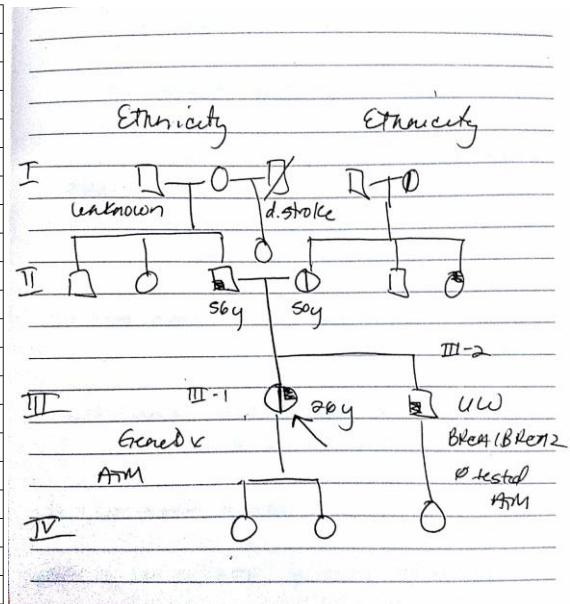 Ethnicity Ethnicity
I
unknown d. stroke
II
56y 50y
III-2
III III-1 26y UW
GeneDx BRCA1/BRCA2
ATM Ø tested
ATM
IV